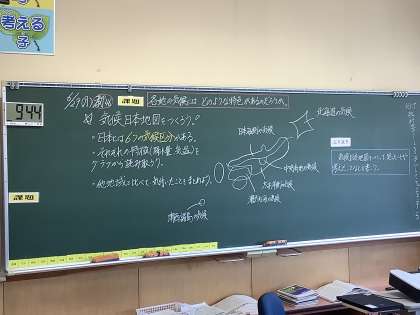 考える
子
944
課題
各地の気候には どのような特色があるのだろうか。
気候日本地図をつくろう。
・日本には6つの気候区分がある。
・それぞれの特徴(降水量・気温)を
グラフから読み取ろう。
・他地域と比べて、気付いたことをまとめよう。
課題
北海道の気候
日本海側の気候
中央高地の気候
太平洋側の気候
瀬戸内の気候
南西諸島の気候